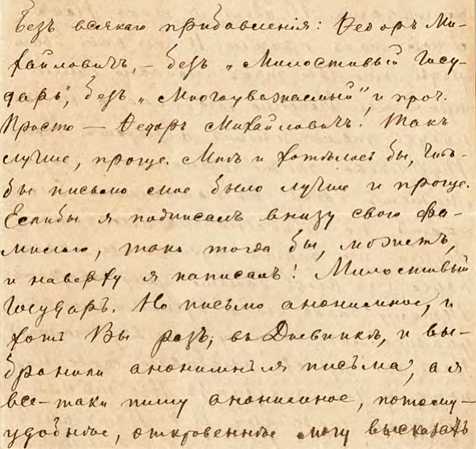 Безъ всякаго прибавленія: Ѳедоръ Ми-
хайловичъ, – безъ „Милостивый Госу-
дарь“, безъ „Многоуважаемый“ и проч.
Просто — Ѳедоръ Михайловичъ! Такъ
лучше, проще. Мнѣ и хотѣлось бы, что-
бы письмо мое было лучше и проще.
Еслибы я подписалъ внизу свою фа-
милію, такъ тогда бы, можетъ,
и наверху я написалъ! Милостивый
Государь. Но письмо анонимное, и
хоть Вы разъ, въ Дневникѣ, и вы-
бранили анонимныя письма, а я
все-таки пишу анонимное, потому –
удобнѣе, откровеннѣе могу высказать